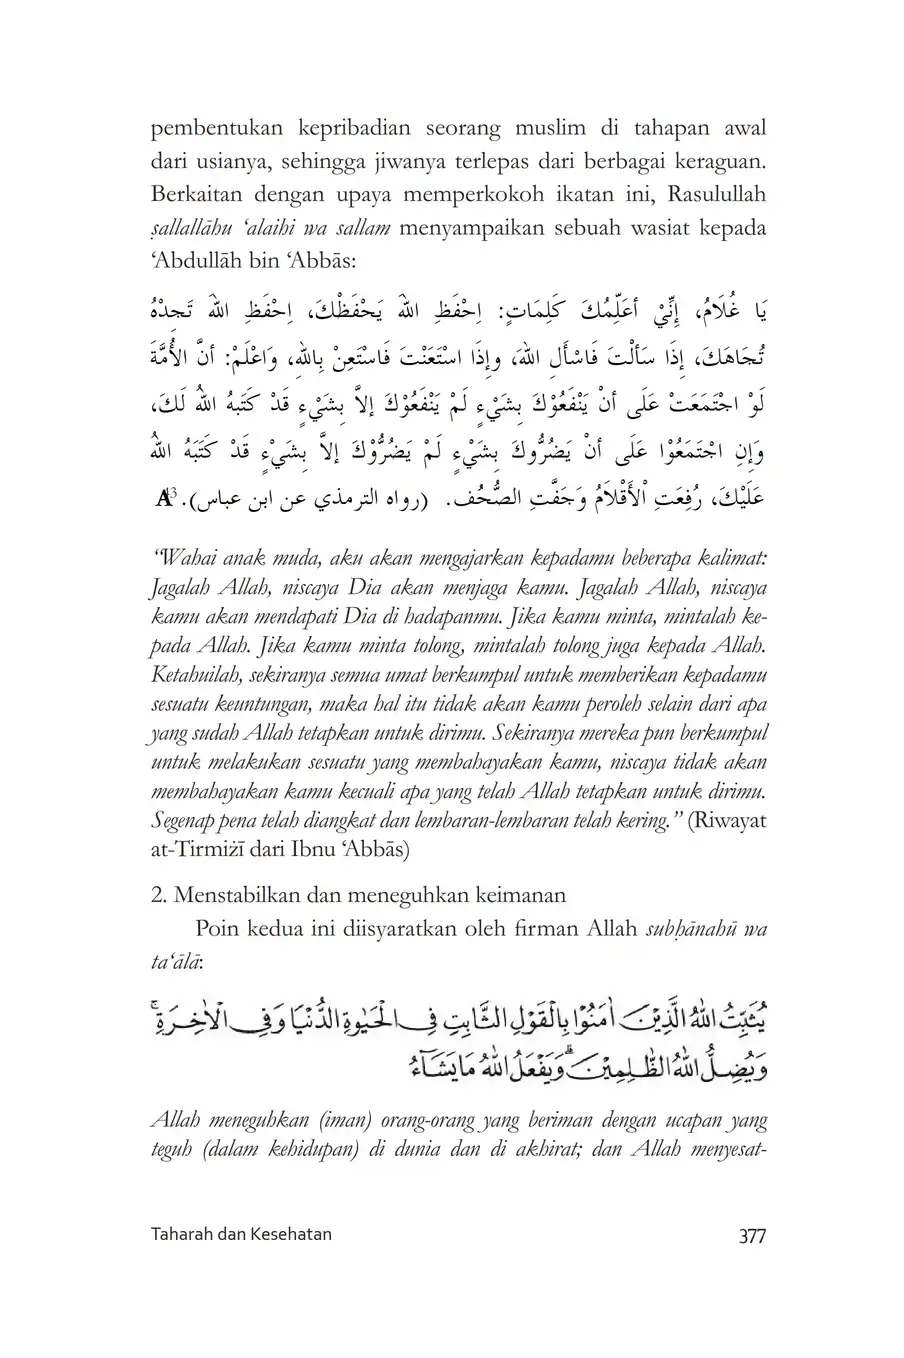 pembentukan kepribadian seorang muslim di tahapan awal
dari usianya, sehingga jiwanya terlepas dari berbagai keraguan.
Berkaitan dengan upaya memperkokoh ikatan ini, Rasulullah
ṣallallāhu ‘alaihi wa sallam menyampaikan sebuah wasiat kepada
‘Abdullāh bin ‘Abbās:
يَا غُلَامُ، إِنِّيْ أعَلِّمُكَ كَلِمَاتٍ: اِحْفَظِ اللهَ يَحْفَظْكَ، اِحْفَظِ اللهَ تَجِدْهُ
تُجَاهَكَ، إِذَا سَألْتَ فَاسْأَلِ اللهَ، وإِذَا اسْتَعَنْتَ فَاسْتَعِنْ بِاللهِ، وَاعْلَمْ: أنَّ الأُمَّةَ
لَوْ اجْتَمَعَتْ عَلَى أنْ يَنْفَعُوْكَ بِشَيْءٍ لَمْ يَنْفَعُوْكَ إلاَّ بِشَيْءٍ قَدْ كَتَبهُ اللهُ لَكَ،
وَإِنِ اجْتَمَعُوْا عَلَى أنْ يَضُرُّوكَ بِشَيْءٍ لَمْ يَضُرُّوْكَ إلاَّ بِشَيْءٍ قَدْ كَتَبَهُ اللهُ
عَلَيْكَ، رُفِعَتِ اْلأَقْلَامُ وَجَفَّتِ الصُّحُف. (رواه الترمذي عن ابن عباس).
“Wahai anak muda, aku akan mengajarkan kepadamu beberapa kalimat:
Jagalah Allah, niscaya Dia akan menjaga kamu. Jagalah Allah, niscaya
kamu akan mendapati Dia di hadapanmu. Jika kamu minta, mintalah ke-
pada Allah. Jika kamu minta tolong, mintalah tolong juga kepada Allah.
Ketahuilah, sekiranya semua umat berkumpul untuk memberikan kepadamu
sesuatu keuntungan, maka hal itu tidak akan kamu peroleh selain dari apa
yang sudah Allah tetapkan untuk dirimu. Sekiranya mereka pun berkumpul
untuk melakukan sesuatu yang membahayakan kamu, niscaya tidak akan
membahayakan kamu kecuali apa yang telah Allah tetapkan untuk dirimu.
Segenap pena telah diangkat dan lembaran-lembaran telah kering.” (Riwayat
at-Tirmiżī dari Ibnu ‘Abbās)
2. Menstabilkan dan meneguhkan keimanan
Poin kedua ini diisyaratkan oleh firman Allah subḥānahū wa
ta‘ālā:
يُثَبِّتُ اللّٰهُ الَّذِيْنَ اٰمَنُوْا بِالْقَوْلِ الثَّابِتِ فِى الْحَيٰوةِ الدُّنْيَا وَفِى الْاٰخِرَةِۚ
وَيُضِلُّ اللّٰهُ الظّٰلِمِيْنَۗ وَيَفْعَلُ اللّٰهُ مَا يَشَاۤءُ
Allah meneguhkan (iman) orang-orang yang beriman dengan ucapan yang
teguh (dalam kehidupan) di dunia dan di akhirat; dan Allah menyesat-
Taharah dan Kesehatan 377